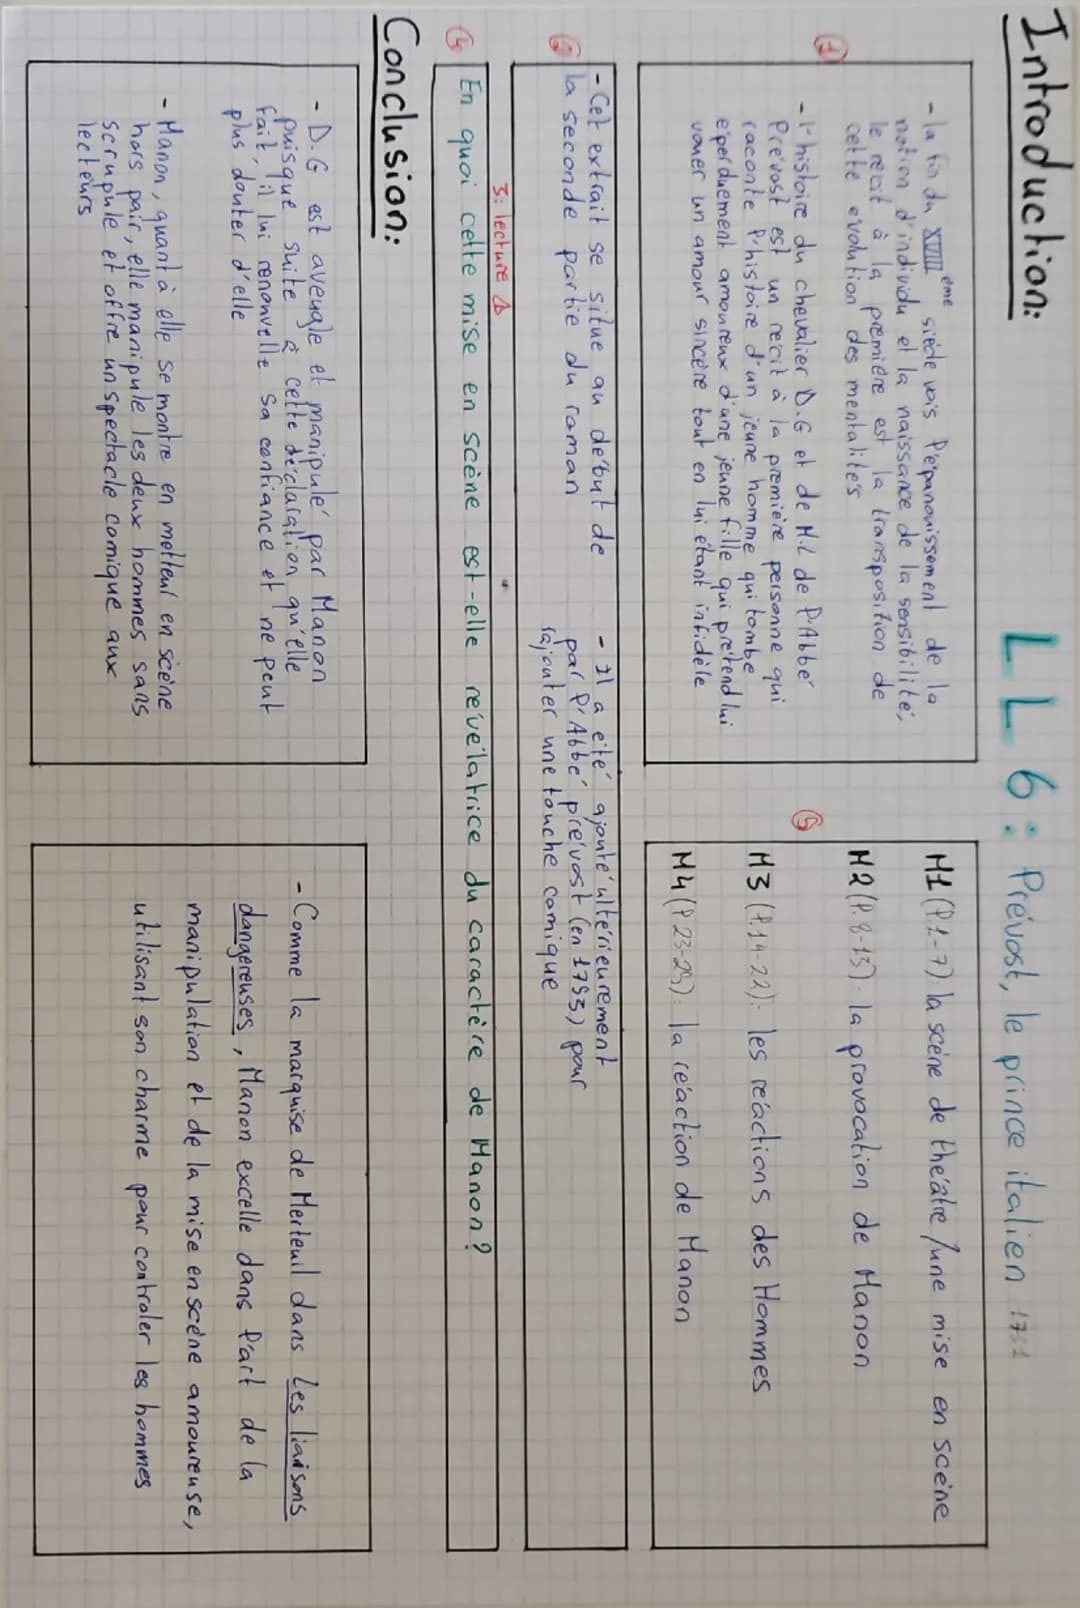 LL 6 : Prévost, le prince italien 1731
Introduction:
①
- la fin du XVIII ème siècle vois l'épanouissement de la
notion d'individu et la naissance de la sensibilité;
le récit à la première est la transposition de
cette évolution des mentalités
- l'histoire du chevalier D.G et de M.L de l'Abbé
Prévost est un récit à la première personne qui
raconte l'histoire d'un jeune homme qui tombe
éperduement amoureux d'une jeune fille qui prétend lui
vouer un amour sincère tout en lui étant infidèle
⑤
M1 (l.1-7): la scène de théâtre / une mise en scène
M2 (l.8-13): la provocation de Manon
M3 (l.14-22): les réactions des Hommes
M4 (l.23-29): la réaction de Manon
②
- Cet extrait se situe au début de
la seconde partie du roman
- Il a été ajouté ultérieurement
par l'Abbé prévost (en 1753) pour
rajouter une touche comique
3: lecture
④ En quoi cette mise en scène est-elle révélatrice du caractère de Manon?
Conclusion:
- D.G est aveugle et manipulé par Manon
puisque suite à cette déclaration qu'elle
fait, il lui renouvelle sa confiance et ne peut
plus douter d'elle
- Manon, quant à elle se montre en metteur en scène
hors pair, elle manipule les deux hommes sans
scrupule et offre un spectacle comique aux
lecteurs
- Comme la marquise de Merteuil dans Les liaisons
dangereuses, Manon excelle dans l'art de la
manipulation et de la mise en scène amoureuse,
utilisant son charme pour controler les hommes